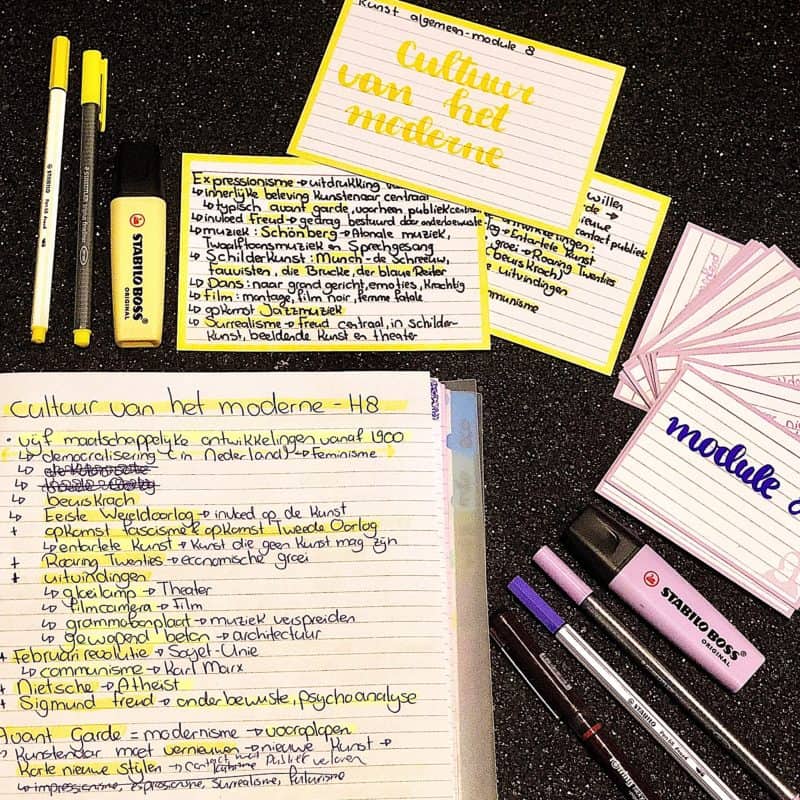 Kunst algemeen-module 8
Cultuur
van het
moderne
Expressionisme → uitdrukking
↳ innerlijke beleving kunstenaar centraal
↳ typisch avant garde, voorheen publiek centraal
↳ invloed Freud → gedrag bestuurd door onderbewuste
↳ muziek: Schönberg → Atonale muziek,
Twaalftoonsmuziek en Sprechgesang
↳ Schilderkunst: Munch - de schreeuw,
fauvisten, die Brücke, der blaue Reiter
↳ Dans: naar grond gericht, emoties, krachtig
↳ film: montage, film noir, femme fatale
↳ opkomst Jazzmuziek
↳ Surrealisme → freud centraal, in schilder-
kunst, beeldende kunst en theater
willen
nieuwe
contact publiek
→ Entartete Kunst
groei → Roaring Twenties
beurskrach)
uitvindingen
module
STABILO BOSS
ORIGINAL
STABILO BOSS
ORIGINAL
STABILO
STABILO
cultuur van het moderne - H8
• vijf maatschappelijke ontwikkelingen vanaf 1900
↳ democralisering (in Nederland) → Feminisme
↳ Beurskrach
↳ Eerste Wereldoorlog → invloed op de kunst
+ opkomst fascisme & opkomst Tweede Oorlog
↳ entartete Kunst → kunst die geen kunst mag zijn
+ Roaring Twenties → economische groei
+ uitvindingen
↳ gloeilamp → Theater
↳ filmcamera → Film
↳ grammofoonplaat → muziek verspreiden
↳ gewapend beton → architectuur
+ Februari revolutie → Sovjet-Unie
↳ communisme → Karl Marx
+ Nietsche → Atheïst
+ Sigmund freud → onderbewuste, psychoanalyse
Avant Garde = modernisme → vooroplopen
→ Kunstenaar moet vernieuwen → nieuwe kunst →
Korte nieuwe stylen → contact met publiek verloren
↳ impressionisme, expressionisme, surrealisme, futurisme